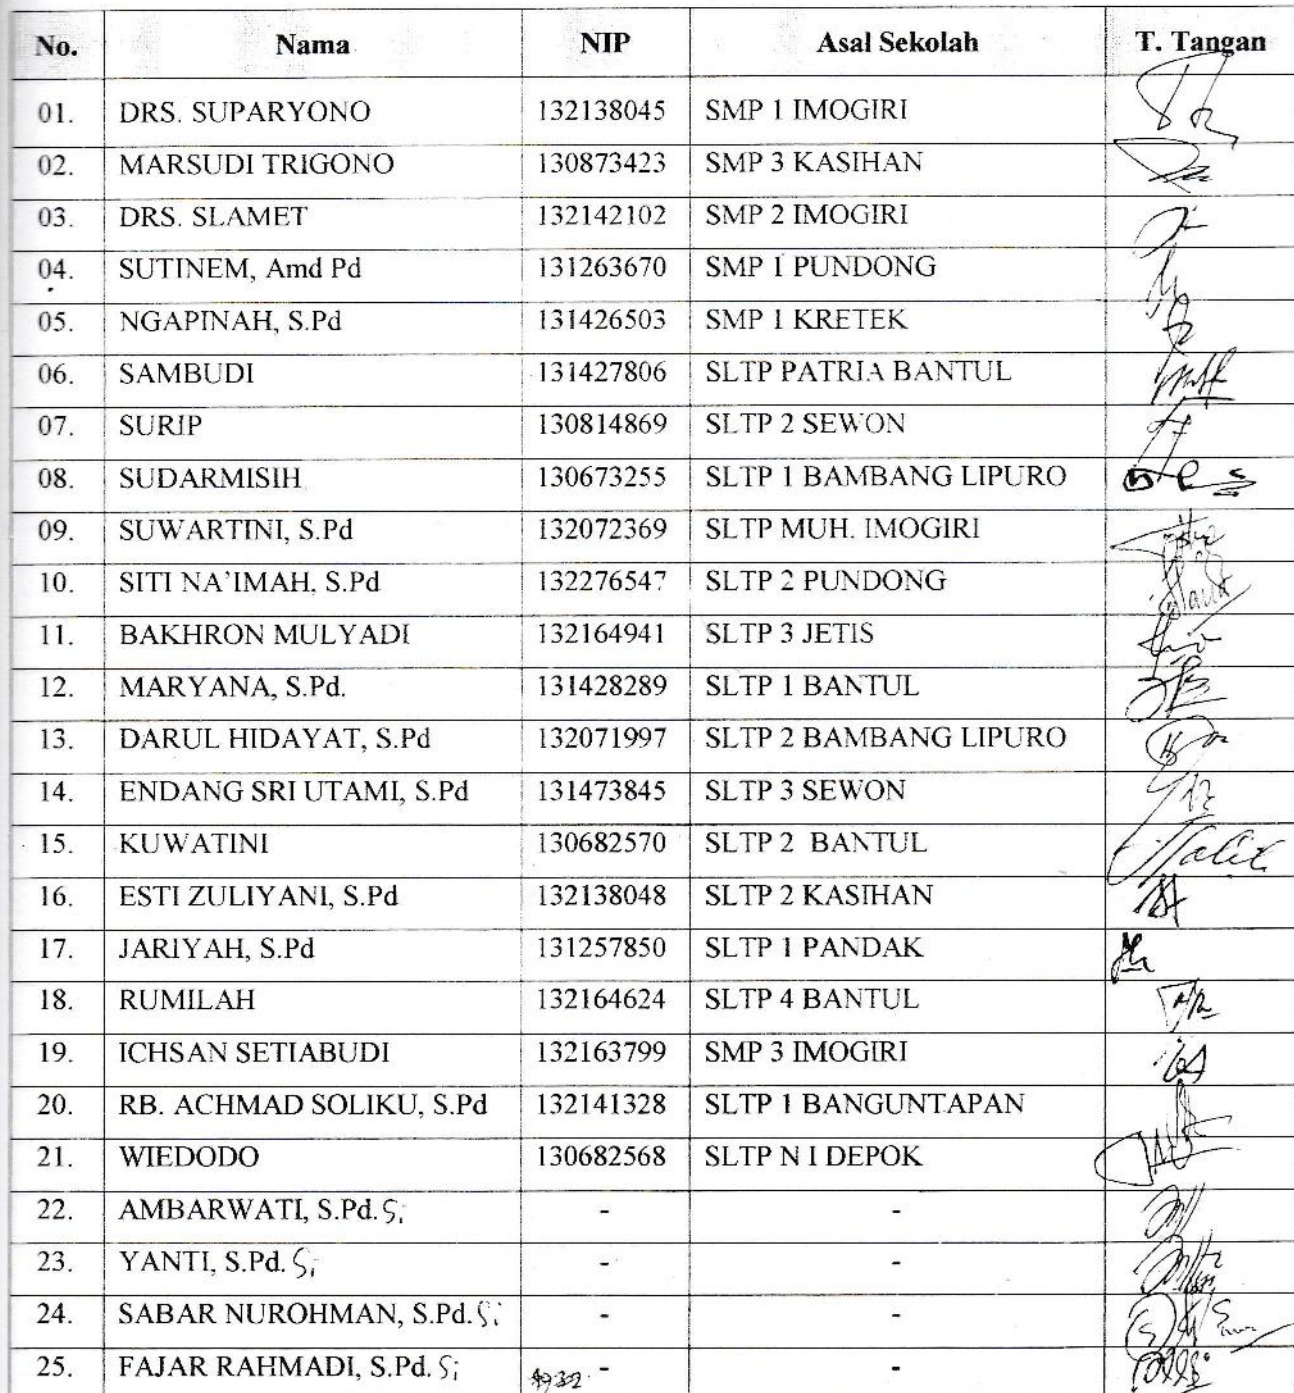 No. Nama NIP Asal Sekolah T. Tangan
01. DRS. SUPARYONO 132138045 SMP 1 IMOGIRI
02. MARSUDI TRIGONO 130873423 SMP 3 KASIHAN
03. DRS. SLAMET 132142102 SMP 2 IMOGIRI
04. SUTINEM, Amd Pd 131263670 SMP 1 PUNDONG
05. NGAPINAH, S.Pd 131426503 SMP 1 KRETEK
06. SAMBUDI 131427806 SLTP PATRIA BANTUL
07. SURIP 130814869 SLTP 2 SEWON
08. SUDARMISIH 130673255 SLTP 1 BAMBANG LIPURO
09. SUWARTINI, S.Pd 132072369 SLTP MUH. IMOGIRI
10. SITI NA'IMAH, S.Pd 132276547 SLTP 2 PUNDONG
11. BAKHRON MULYADI 132164941 SLTP 3 JETIS
12. MARYANA, S.Pd. 131428289 SLTP 1 BANTUL
13. DARUL HIDAYAT, S.Pd 132071997 SLTP 2 BAMBANG LIPURO
14. ENDANG SRI UTAMI, S.Pd 131473845 SLTP 3 SEWON
15. KUWATINI 130682570 SLTP 2 BANTUL
16. ESTI ZULIYANI, S.Pd 132138048 SLTP 2 KASIHAN
17. JARIYAH, S.Pd 131257850 SLTP 1 PANDAK
18. RUMILAH 132164624 SLTP 4 BANTUL
19. ICHSAN SETIABUDI 132163799 SMP 3 IMOGIRI
20. RB. ACHMAD SOLIKU, S.Pd 132141328 SLTP 1 BANGUNTAPAN
21. WIEDODO 130682568 SLTP N I DEPOK
22. AMBARWATI, S.Pd. Si - -
23. YANTI, S.Pd. Si - -
24. SABAR NUROHMAN, S.Pd. Si - -
25. FAJAR RAHMADI, S.Pd. Si - -